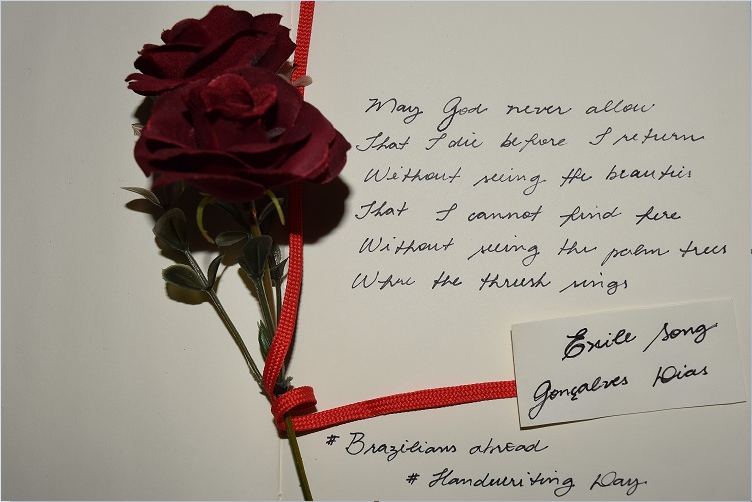 May God never allow
That I die before I return
Without seing the beauties
That I cannot find here
Without seeing the palm trees
Where the thrush sings
Exile song
Gonçalves Dias
# Brazilians abroad
# Handwriting Day